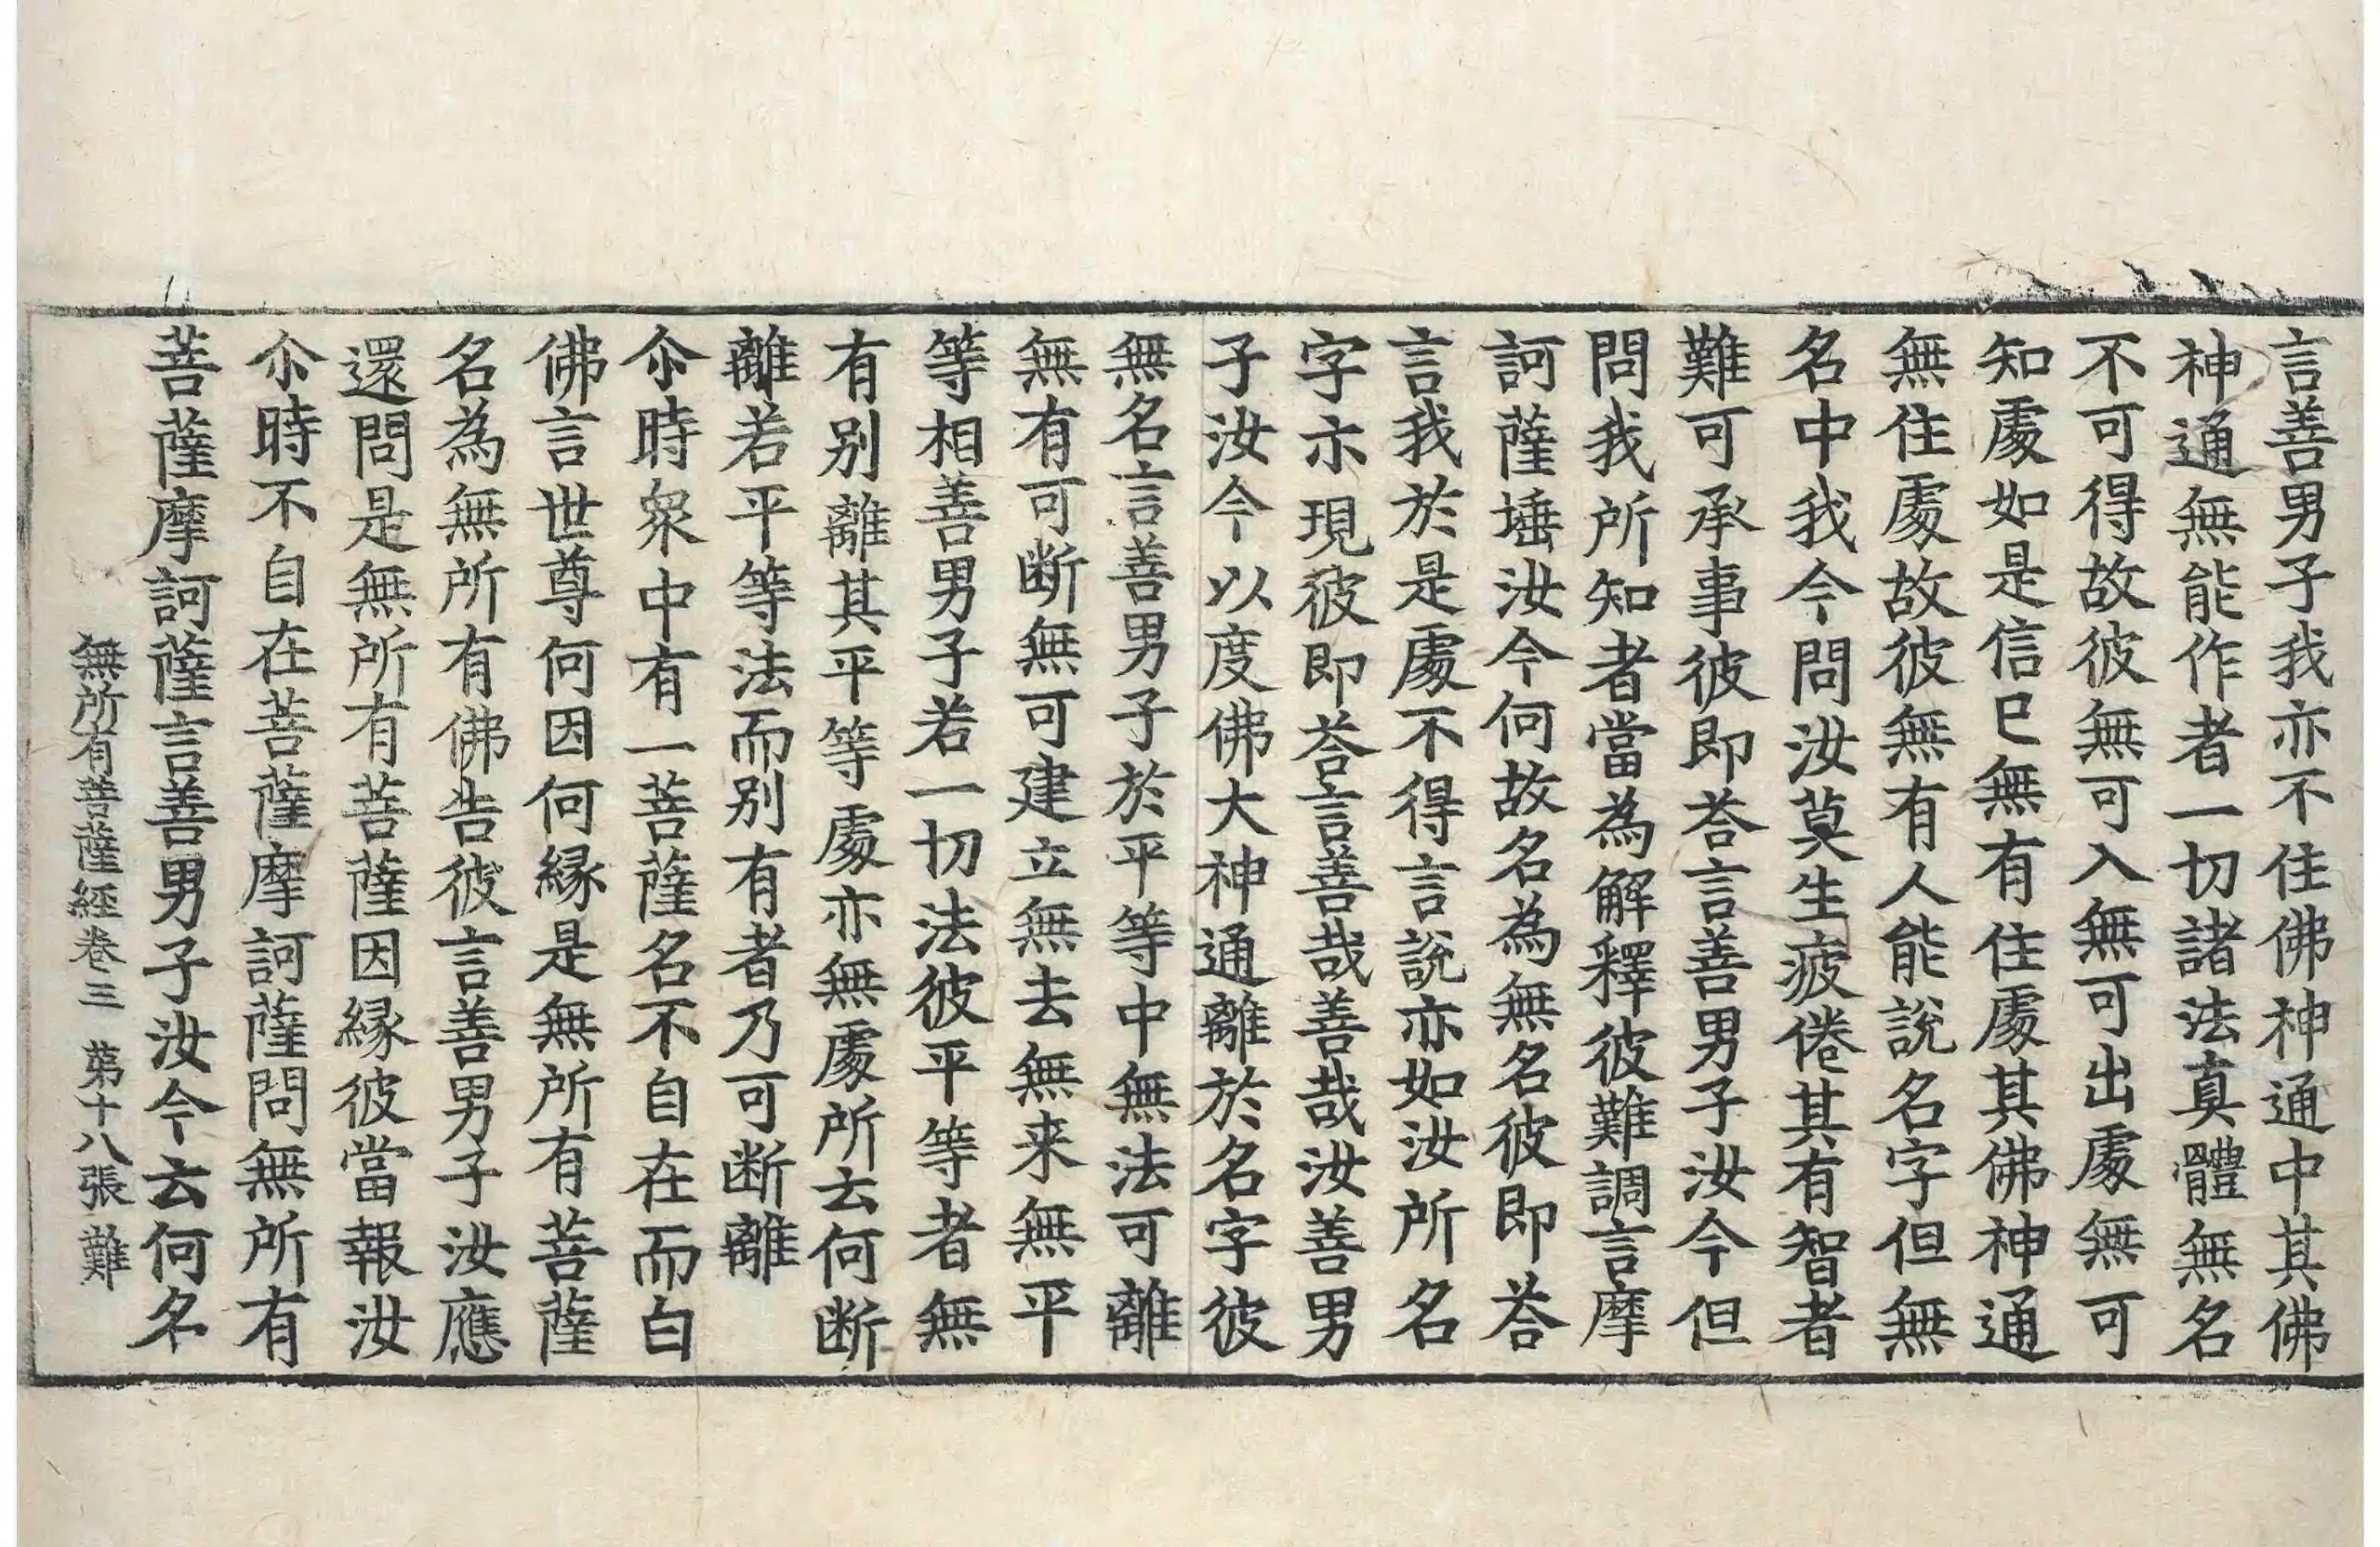 言善男子我亦不住佛神通中其佛
神通無能作者一切諸法真體無名
不可得故彼無可入無可出處無可
知處如是信已無有住處其佛神通
無住處故彼無有人能說名字但無
名中我今問汝莫生疲倦其有智者
難可承事彼即荅言善男子汝今但
問我所知者當為解釋彼難調言摩
訶薩埵汝今何故名為無名彼即荅
言我於是處不得言說亦如汝所名
字示現彼即荅言善哉善哉汝善男
子汝今以度佛大神通離於名字彼
無名言善男子於平等中無法可離
無有可断無可建立無去無来無平
等相善男子若一切法彼平等者無
有別離其平等處亦無處所云何断
離若平等法而別有者乃可断離
尒時衆中有一菩薩名不自在而白
佛言世尊何因何縁是無所有菩薩
名為無所有佛告彼言善男子汝應
還問是無所有菩薩因縁彼當報汝
尒時不自在菩薩摩訶薩問無所有
菩薩摩訶薩言善男子汝今云何名
無所有菩薩經卷三 苐十八張 難